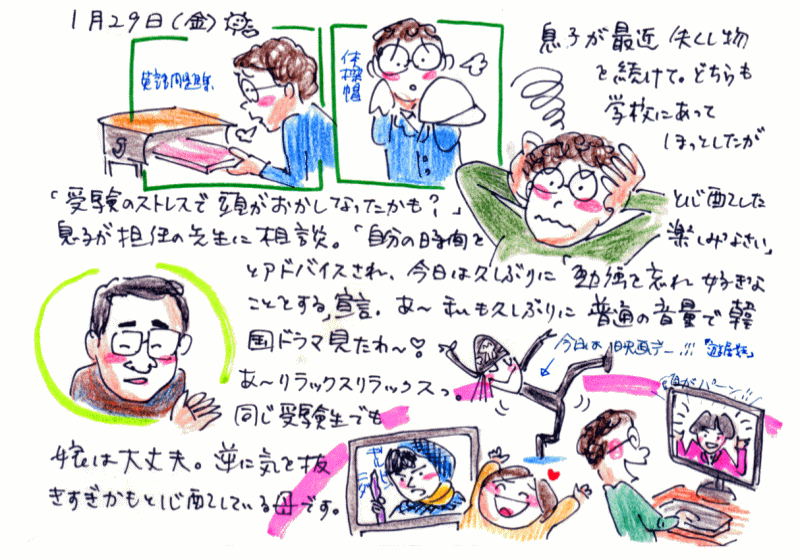 1月29日(金)
英語問題集
体操帽
息子が最近 失くし物
を続けて。どちらも
学校にあって
ほっとしたが
「受験のストレスで頭がおかしくなったかも?」
と心配した
息子が担任の先生に相談。「自分の時間を
楽しみなさい」
とアドバイスされ、今日は久しぶりに「勉強を忘れ好きな
ことをする」宣言。あ〜私も久しぶりに普通の音量で韓
国ドラマ見たわ〜♡
あ〜リラックスリラックスっ。
同じ受験生でも
娘は大丈夫。逆に気を抜
きすぎかもと心配している母です。
今日は 映画デー!!!